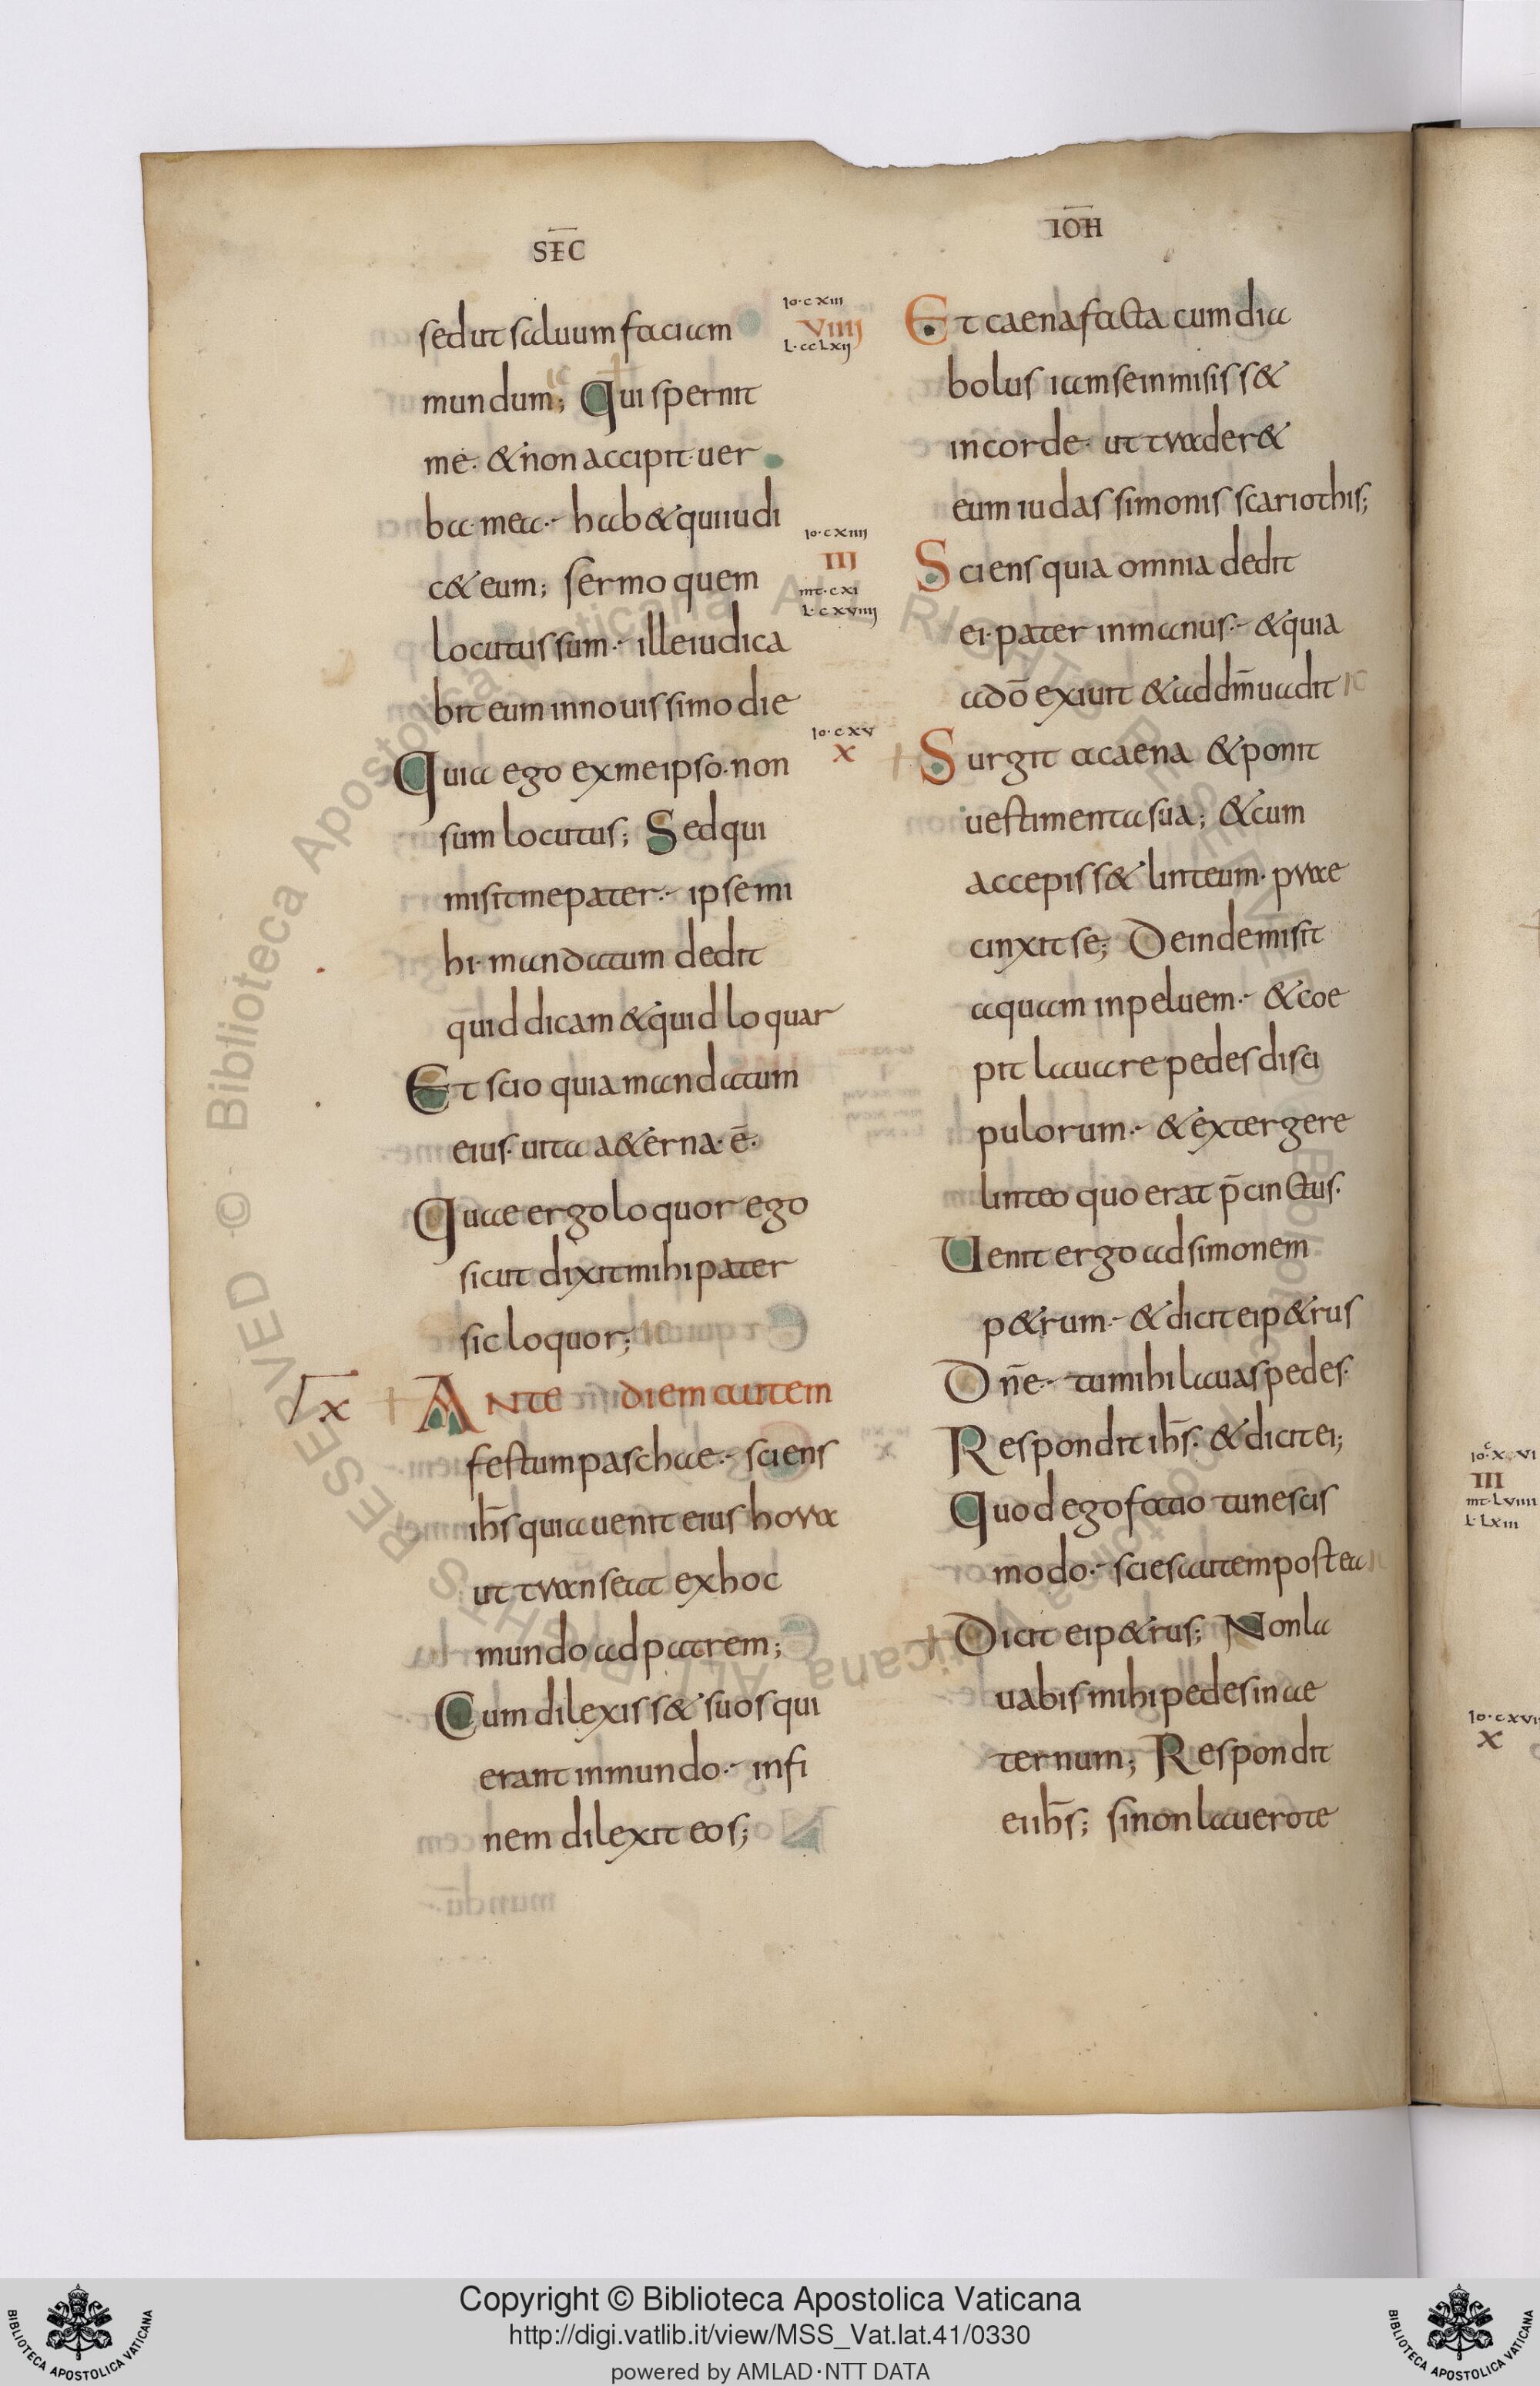 SEC
IOH
sed ut saluum faciam
mundum; Qui spernit
me· & non accipit uer
ba mea·- hab& qui iudi
c& eum; sermo quem
locutus sum·- ille iudica
bit eum in nouissimo die
Quia ego ex me ipso· non
sum locutus; Sed qui
misit me pater·- ipse mi
hi· mandatum dedit
quid dicam & quid loquar
Et scio quia mandatum
eius· uita a&erna· ē·
Quae ergo loquor ego
sicut dixit mihi pater
sic loquor;
X
ANTE diem autem
festum paschae·- sciens
ihs̄ quia uenit eius hora
ut transeat ex hoc
mundo ad patrem;
Cum dilexiss& suos qui
erant in mundo·- in fi
nem dilexit eos;
Io·cXIII
VIIII
L·ccLXII
Et caena facta cum dia
bolus iam se inmisiss&
in corde· ut trader&
eum iudas simonis scariothis;
Io·cXIIII
III
mt·cXI
L·cXVIIII
Sciens quia omnia dedit
ei· pater in manus·- & quia
a dō exiuit & ad dm̄ uadit
Io·cXV
X
Surgit a caena & ponit
uestimenta sua; & cum
accepiss& linteum· prae
cinxit se; Deinde misit
aquam in peluem·- & coe
pit lauare pedes disci
pulorum·- & extergere
linteo quo erat p̄cinctus·
Uenit ergo ad simonem
p&rum·- & dicit ei p&rus
Dn̄e·- tu mihi lauas pedes·
Respondit ihs̄· & dicit ei;
Quod ego facio tu nescis
modo·- scies autem postea
Dicit ei p&rus; Non la
uabis mihi pedes in ae
ternum; Respondit
ei ihs̄; si non lauero te
III
mt·LVIIII
L·LXIII
Io·cXVII
X
Biblioteca Apostolica Vaticana ALL RIGHTS RESERVED ©
Copyright © Biblioteca Apostolica Vaticana
http://digi.vatlib.it/view/MSS_Vat.lat.41/0330
powered by AMLAD·NTT DATA
BIBLIOTECA APOSTOLICA VATICANA
BIBLIOTECA APOSTOLICA VATICANA